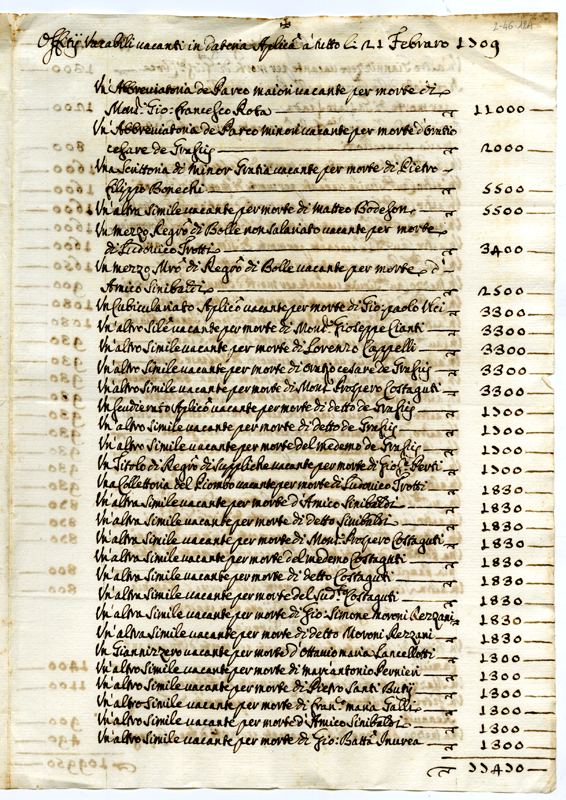 2-46-124
Offitij Vacabili vacanti in dateria Aplica à tutto li 21 Febraro 1709
Un'Abbreviatoria de Parco maiori vacante per morte di
Mons.r Gio: Francesco Rota 11000
Un'Abbreviatoria de Parco minori vacante per morte d'Oratio
cesare de 2000
Una Scrittoria di minor Gratia vacante per morte di Pietro
Filippo Bonechi 5500
Un'altra Simile vacante per morte di Matteo Bodeson 5500
Un mezzo Regro di Bolle non salariato vacante per morte
di Ludovico Trotti 3400
Un mezzo Mro di Regro di Bolle vacante per morte d'
Amico Sinibaldi 2500
Un Cubiculariato Aplico vacante per morte di Gio: paolo Uci 3300
Un'altro Sile vacante per morte di Mons.r Gioseppe Cianti 3300
Un'altro Simile vacante per morte di Lorenzo Cappelli 3300
Un'altro Simile vacante per morte di Oratio cesare de 3300
Un'altro Simile vacante per morte di Mons.r Prospero Costaguti 3300
Un Scudierato Aplico vacante per morte di detto de 1700
Un'altro Simile vacante per morte di detto de 1700
Un'altro Simile vacante per morte del medemo de 1700
Un Titolo di Regro di Suppliche vacante per morte di Perti 1700
Una Collettoria del Piombo vacante per morte di Ludovico Trotti 1830
Un'altra Simile vacante per morte d'Amico Sinibaldi 1830
Un'altra Simile vacante per morte di detto Sinibaldi 1830
Un'altra Simile vacante per morte di Mons.r Prospero Costaguti 1830
Un'altra Simile vacante per morte del medemo Costaguti 1830
Un'altra Simile vacante per morte di detto Costaguti 1830
Un'altra Simile vacante per morte del sud.to Costaguti 1830
Un'altra Simile vacante per morte di Gio: Simone Moroni Rezzani 1830
Un'altra Simile vacante per morte di detto Moroni Rezzani 1830
Un Giannizzero vacante per morte d'Ottavio maria Lancellotti 1300
Un'altro Simile vacante per morte di marc'antonio Pernieri 1300
Un'altro Simile vacante per morte di Pietro Santi Butij 1300
Un'altro Simile vacante per morte di Fran.co maria Galli 1300
Un'altro Simile vacante per morte d'Amico Sinibaldi 1300
Un'altro Simile vacante per morte di Gio: Batta Inurea 1300
77470